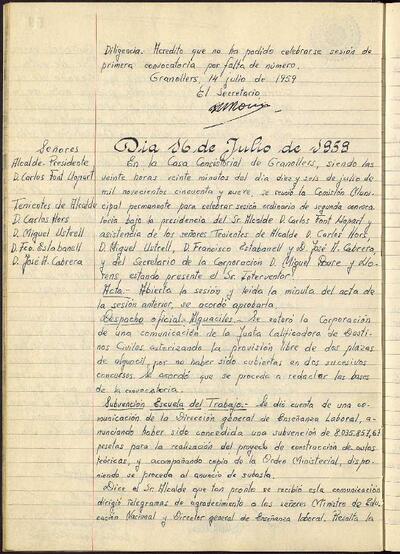 Diligencia. Acredito que no ha podido celebrarse sesión de
primera convocatoria por falta de número.
Granollers, 14 julio de 1959
El Secretario
Señores
Alcalde-Presidente
D. Carlos Font Llopart
Tenientes de Alcalde
D. Carlos Hors
D. Miguel Ustrell
D. Fco. Estabanell
D. José H. Cabrera
Dia 16 de Julio de 1959
En la Casa Consistorial de Granollers, siendo las
veinte horas veinte minutos del dia diez y seis de julio de
mil novecientos cincuenta y nueve, se reunió la Comisión Muni-
cipal permanente para celebrar sesión ordinaria de segunda convoca-
toria bajo la presidencia del Sr. Alcalde D. Carlos Font Llopart y
asistencia de los señores Tenientes de Alcalde D. Carlos Hors,
D. Miguel Ustrell, D. Francisco Estabanell y D. José H. Cabrera,
y del Secretario de la Corporación D. Miguel
estando presente el Sr. Interventor.
Acta.- Abierta la sesión y leida la minuta del acta de
la sesión anterior, se acordó aprobarla.
Despacho oficial.- Alguaciles.- Se enteró la Corporación
de una comunicación de la Junta Calificadora de Desti-
nos Civiles autorizando la provisión libre de dos plazas
de alguacil, por no haber sido cubiertas en dos sucesivos
concursos. Se acordó que se proceda a redactar las bases
de la convocatoria.
Subvención Escuela del Trabajo.- Se dio cuenta de una co-
municación de la Dirección general de Enseñanza Laboral, a-
nunciando haber sido concedida una subvención de 8.035.857,67
pesetas para la realización del proyecto de construcción de aulas
teóricas, y acompañando copia de la Orden Ministerial, dispo-
niendo se proceda al anuncio de subasta.
Dice el Sr. Alcalde que tan pronto se recibió esta comunicación
dirigió telegramas de agradecimiento a los señores Ministro de Edu-
cación Nacional y Director general de Enseñanza laboral. Resalta la